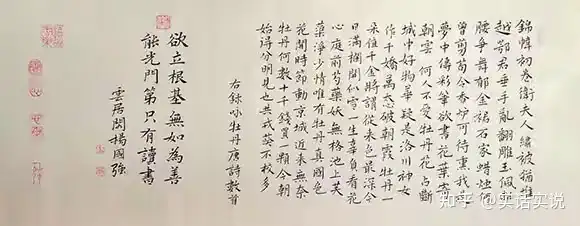 錦幃初卷衛夫人繡被猶堆
越鄂君垂手亂翻雕玉佩折
腰爭舞郁金裙石家蠟燭何
曾剪荀令香爐可待熏我是
夢中傳彩筆欲書花葉寄
朝雲 何人不愛牡丹花占斷
城中好物華疑是洛川神女
作千嬌萬態破朝霞 牡丹一
朵值千金將謂從來色最深今
日滿欄開似雪一生辜負看花
心 庭前芍藥妖無格池上芙
蕖淨少情唯有牡丹真國色
花開時節動京城 近來無奈
牡丹何數十千錢買一顆今朝
始得分明見也共戎葵不校多
右錄咏牡丹唐詩數首
欲立根基無如為善
能光門第只有讀書
雲居閣楊國強
知乎 @实话实说